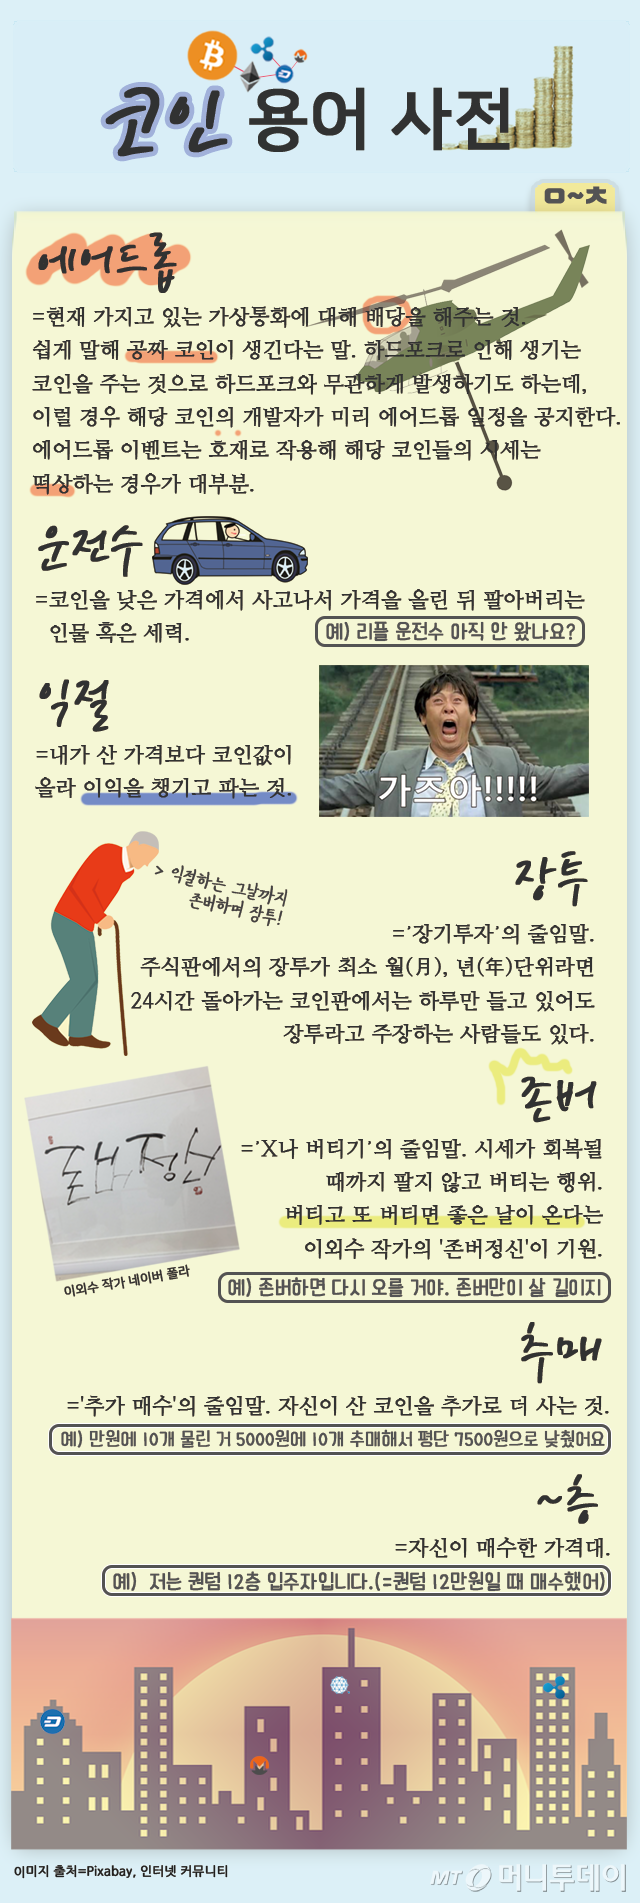 코인 용어 사전
ㅁ~ㅊ
에어드롭
=현재 가지고 있는 가상통화에 대해 배당을 해주는 것.
쉽게 말해 공짜 코인이 생긴다는 말. 하드포크로 인해 생기는
코인을 주는 것으로 하드포크와 무관하게 발생하기도 하는데,
이럴 경우 해당 코인의 개발자가 미리 에어드롭 일정을 공지한다.
에어드롭 이벤트는 호재로 작용해 해당 코인들의 시세는
떡상하는 경우가 대부분.
운전수
=코인을 낮은 가격에서 사고나서 가격을 올린 뒤 팔아버리는
인물 혹은 세력.
예) 리플 운전수 아직 안 왔나요?
익절
=내가 산 가격보다 코인값이
올라 이익을 챙기고 파는 것.
가즈아!!!!!
> 익절하는 그날까지
존버하며 장투!
장투
='장기투자'의 줄임말.
주식판에서의 장투가 최소 월(月), 년(年)단위라면
24시간 돌아가는 코인판에서는 하루만 들고 있어도
장투라고 주장하는 사람들도 있다.
존버
='X나 버티기'의 줄임말. 시세가 회복될
때까지 팔지 않고 버티는 행위.
버티고 또 버티면 좋은 날이 온다는
이외수 작가의 '존버정신'이 기원.
존버정신
이외수 작가 네이버 폴라
예) 존버하면 다시 오를 거야. 존버만이 살 길이지
추매
='추가 매수'의 줄임말. 자신이 산 코인을 추가로 더 사는 것.
예) 만원에 10개 물린 거 5000원에 10개 추매해서 평단 7500원으로 낮췄어요
~층
=자신이 매수한 가격대.
예) 저는 퀀텀 12층 입주자입니다.(=퀀텀 12만원일 때 매수했어)
이미지 출처=Pixabay, 인터넷 커뮤니티
MT 머니투데이